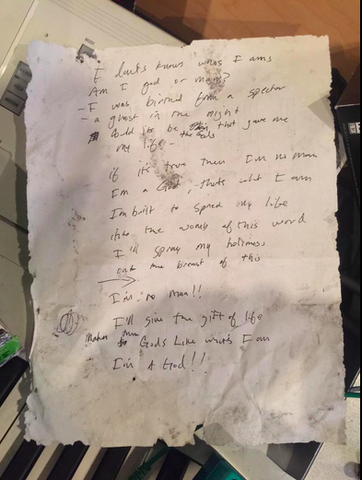 I dont's knows whos I ams
Am I god or mans?
- I was birthed from a specter
- a ghost in the night
Could it be the gods that gave me
my life -
if its true then I'm no man
I'm a God, thats what I am
I'm built to spread my life
into the womb of this word
I'll spray my holiness
out the breast of this
I'm no man!!
I'll give the gift of life
Makes them to Gods Like whats I am
I'm A God!!